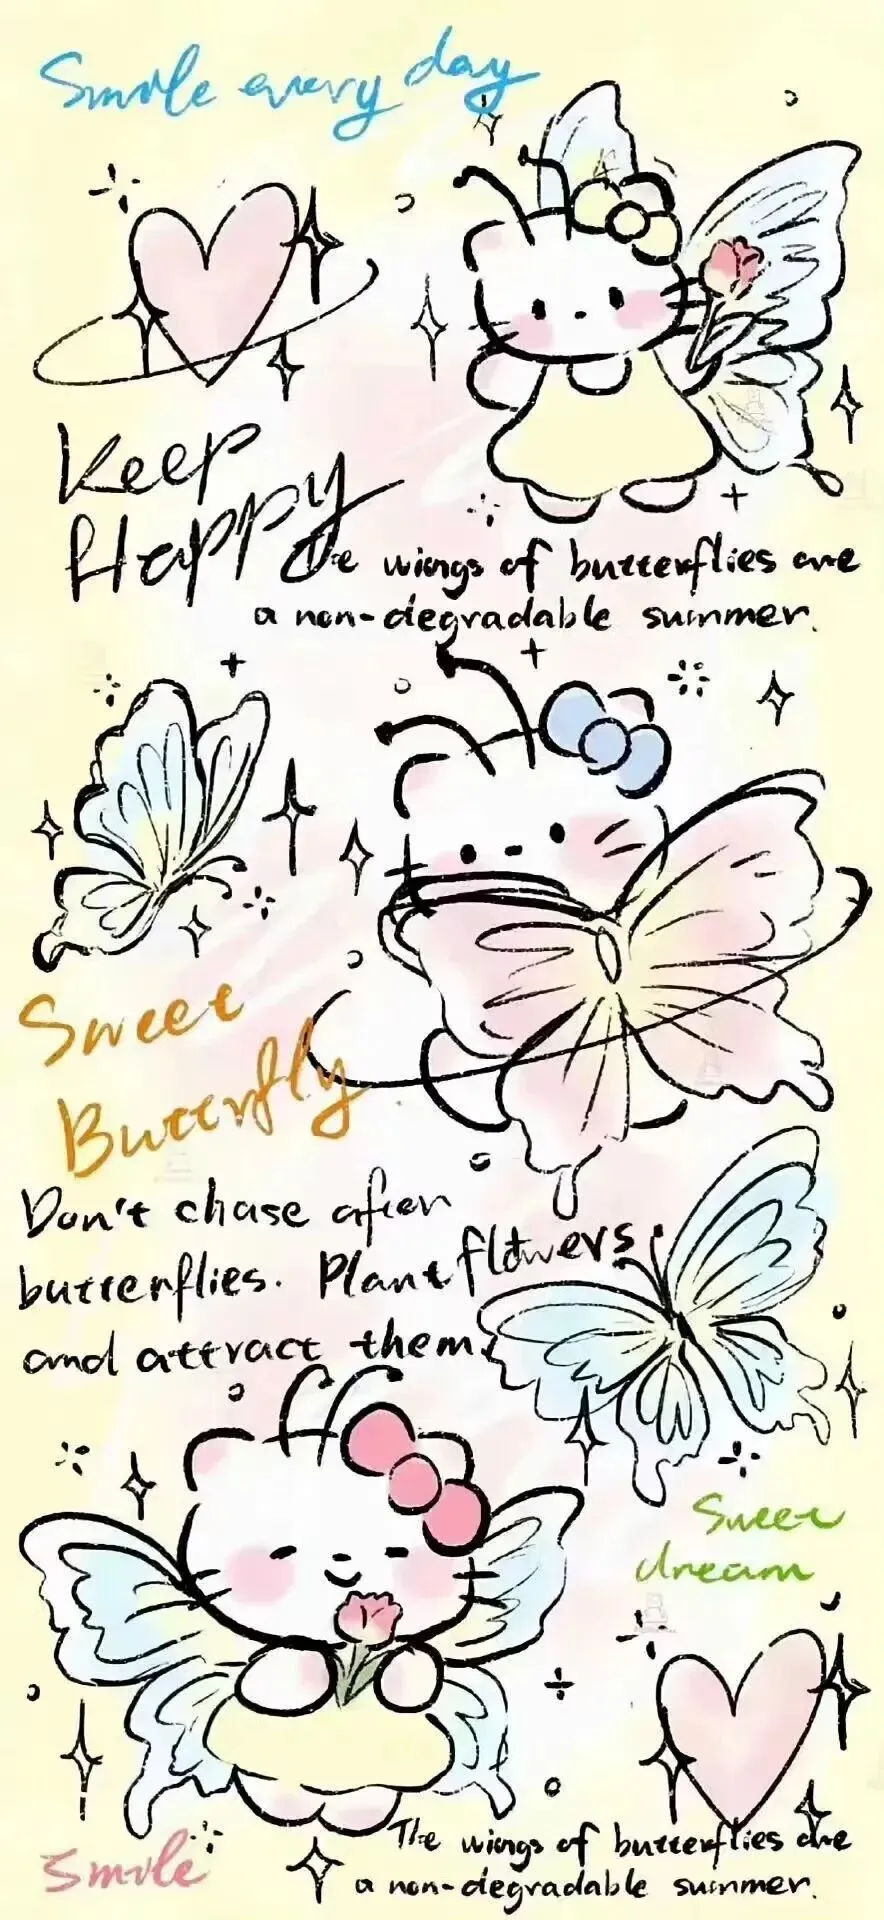 Smile every day
Keep
Happy
The wings of butterflies are
a non-degradable summer.
Sweet
Butterfly
Don't chase after
butterflies. Plant flowers
and attract them.
Sweet
dream
Smile
The wings of butterflies are
a non-degradable summer.